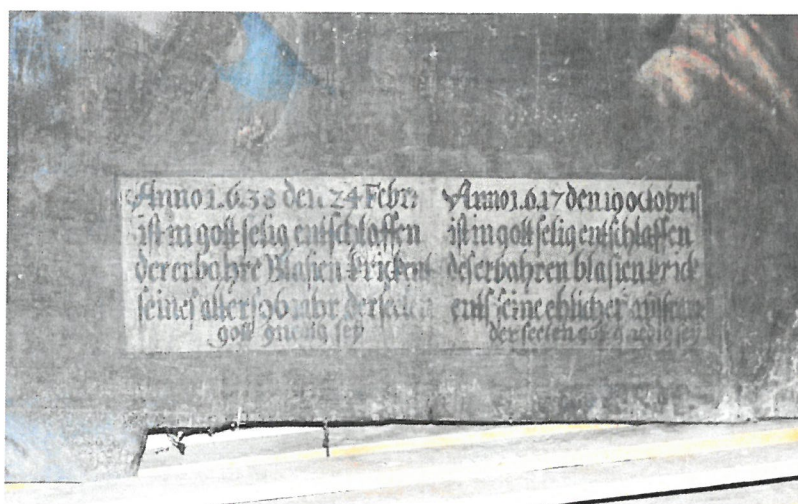 Anno 1.6.38 den 24 Febr:
ist in gott selig entschlaffen
der erbahre Blasien krickent
seines alters 96 jahr der seelen
gott gnedig sey
Anno 1.6.17 den 19 octobris
ist in gott selig entschlaffen
des erbahren blasien krick
ents seine ehlicher
der seelen gott gnedig sey